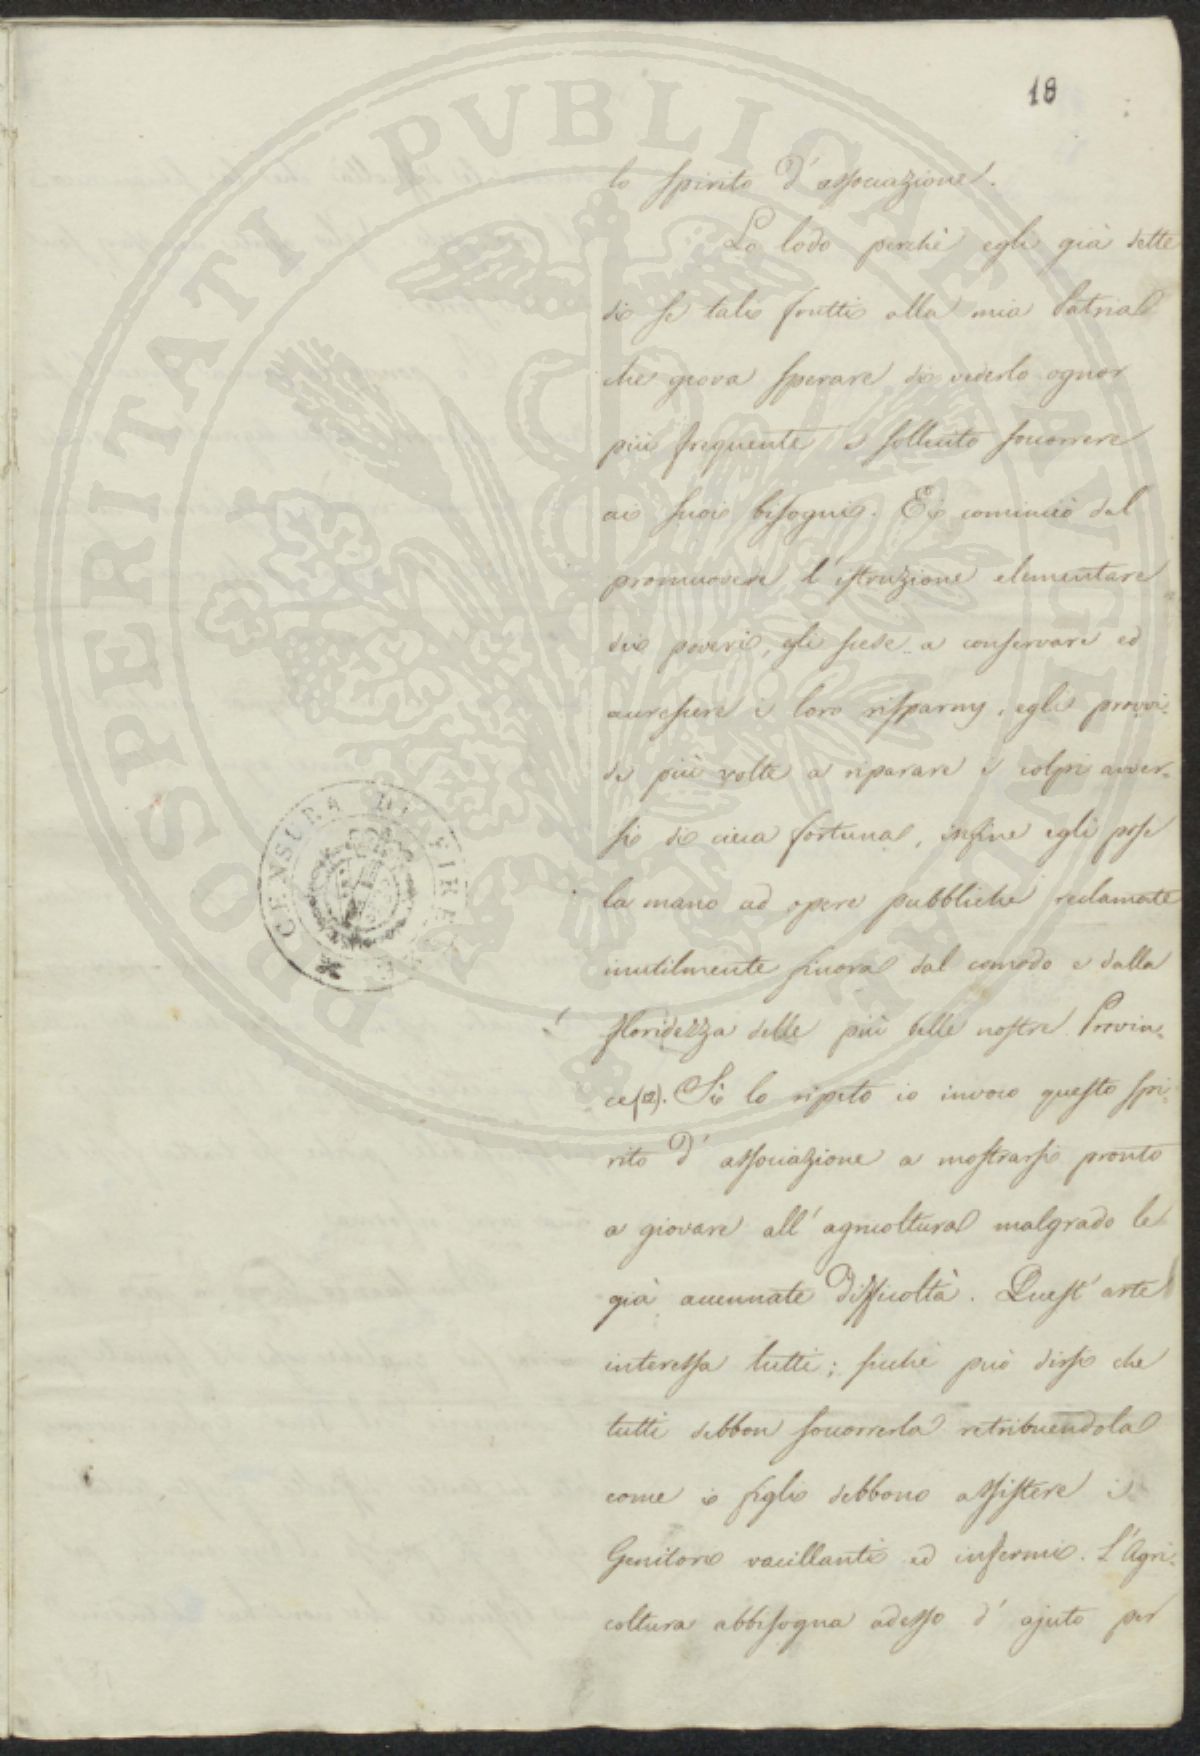 18
lo spirito d'associazione.
Lo lodo perchè egli già dette
di se tali frutti alla mia Patria
che giova sperare di vederlo ognor
più frequente e sollecito soccorrere
ai suoi bisogni. Ei cominciò dal
promuovere l'istruzione elementare
dei poveri, esso scese a conservare ed
accrescere i loro risparmj, egli provvi-
de più volte a riparare i colpi avver-
si di cieca fortuna, infine egli pose
la mano ad opere pubbliche reclamate
inutilmente finora dal comodo e dalla
floridezza delle più belle nostre Provin-
ce (12). Sì lo ripeto io invoco questo spi-
rito d'associazione a mostrarsi pronto
a giovare all'agricoltura malgrado le
già accennate difficoltà. Quest'arte
interessa tutti; sicchè può dirsi che
tutti debbon soccorrerla retribuendola
come i figli debbono assistere i
Genitori vacillanti ed infermi. L'Agri-
coltura abbisogna adesso d'ajuto per
CENSURA DI FIRENZE
PROSPERITATI PVBLICAE AVGENDAE